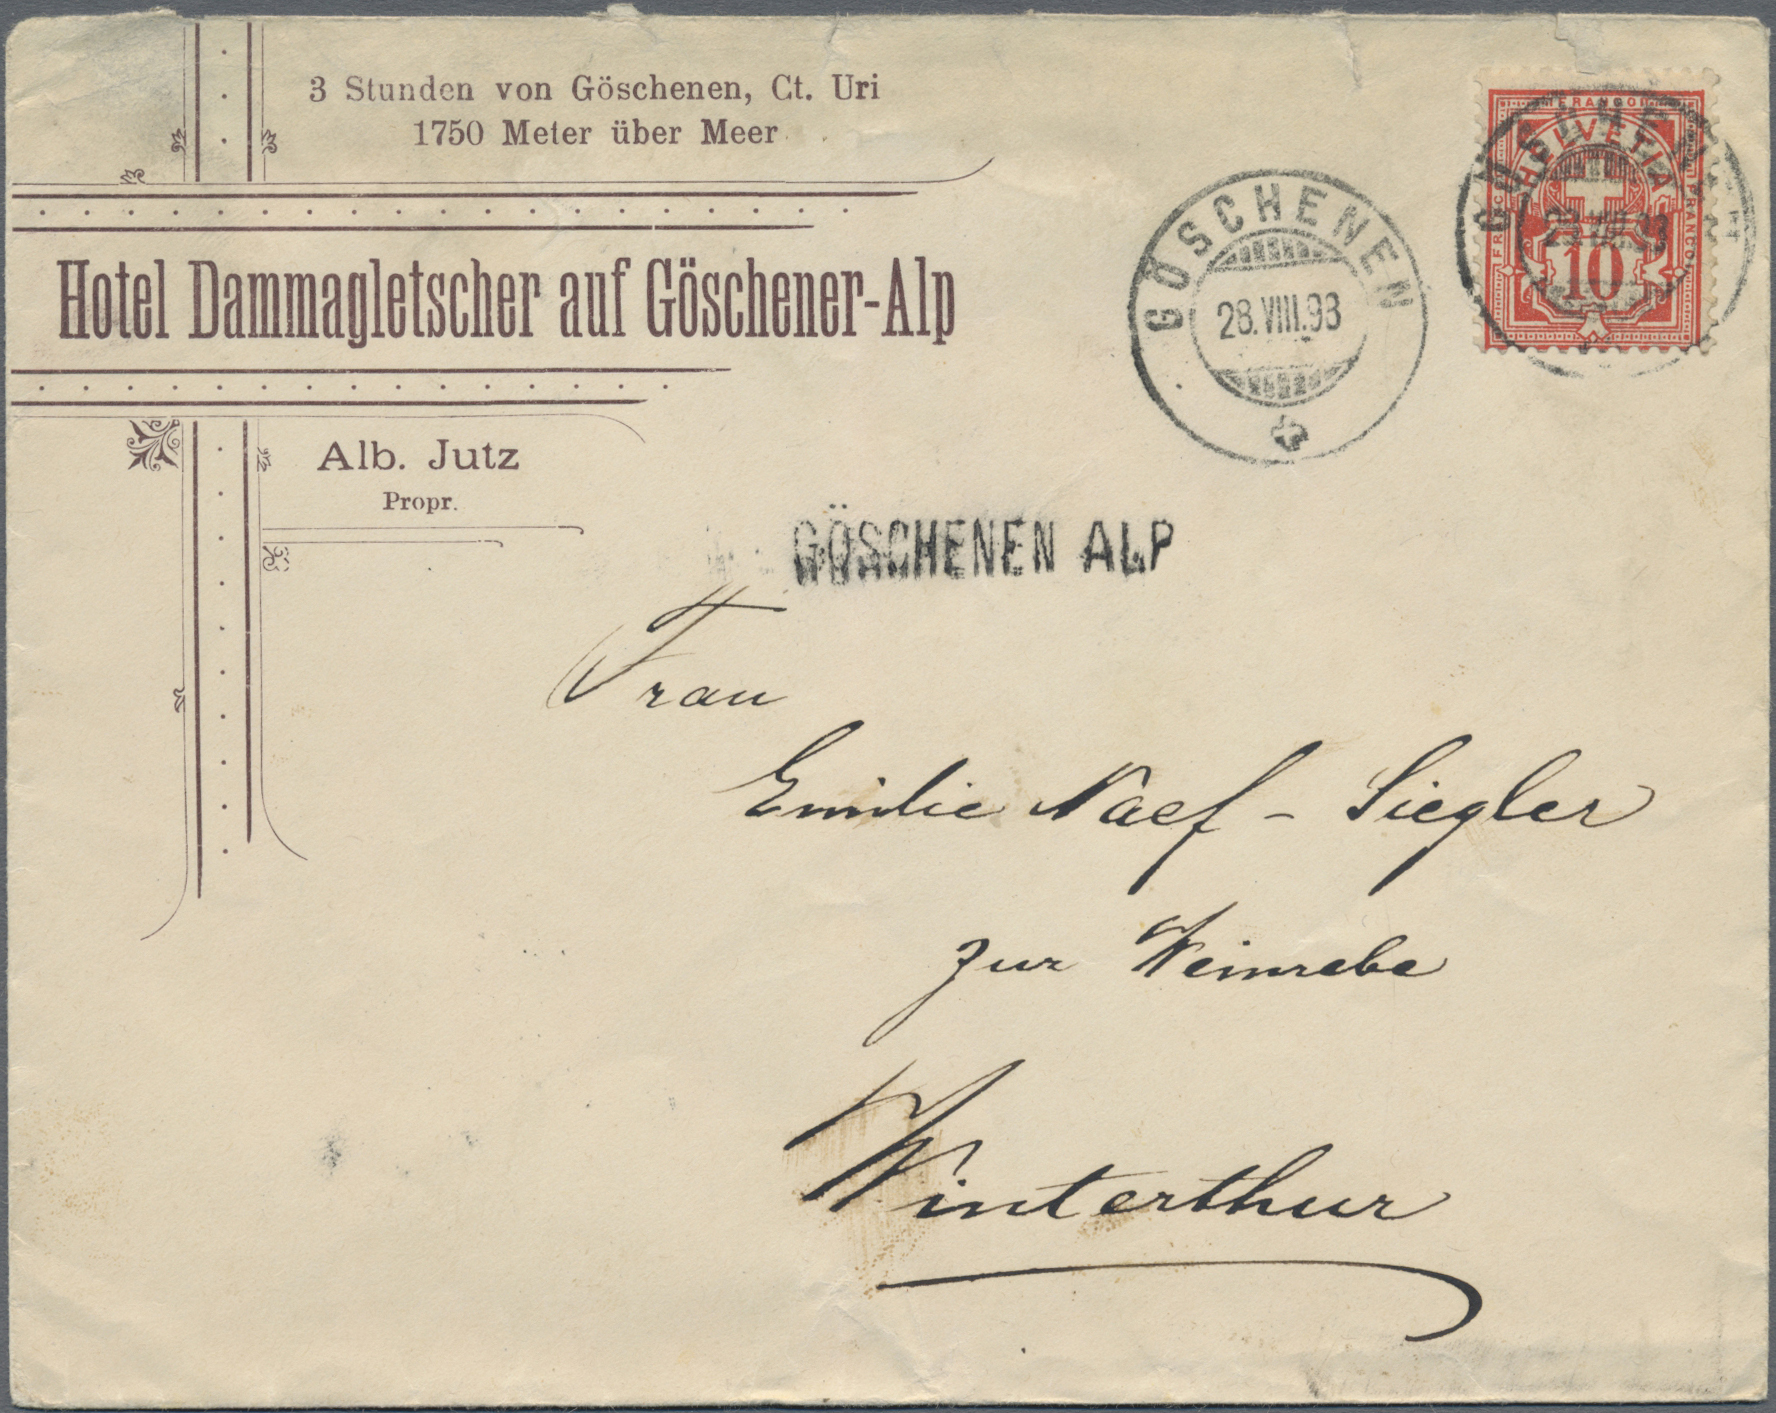 3 Stunden von Göschenen, Ct. Uri
1750 Meter über Meer
Hotel Dammagletscher auf Göschener-Alp
Alb. Jutz
Propr.
GÖSCHENEN
28.VIII.93
HELVETIA
FRANCO
10
GÖSCHENEN ALP
Frau
Emilie Naef - Siegler
zur Weinrebe
Winterthur